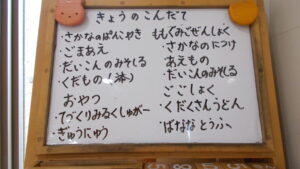 きょうのこんだて
・さかなのぱんこやき
・ごまあえ
・だいこんのみそしる
・くだもの
おやつ
・てづくりみるくしゅがー
・ぎゅうにゅう
ももぐみごぜんしょく
・さかなのにつけ
・あえもの
・だいこんのみそしる
ごごしょく
・くだくさんうどん
・ばななとうふ